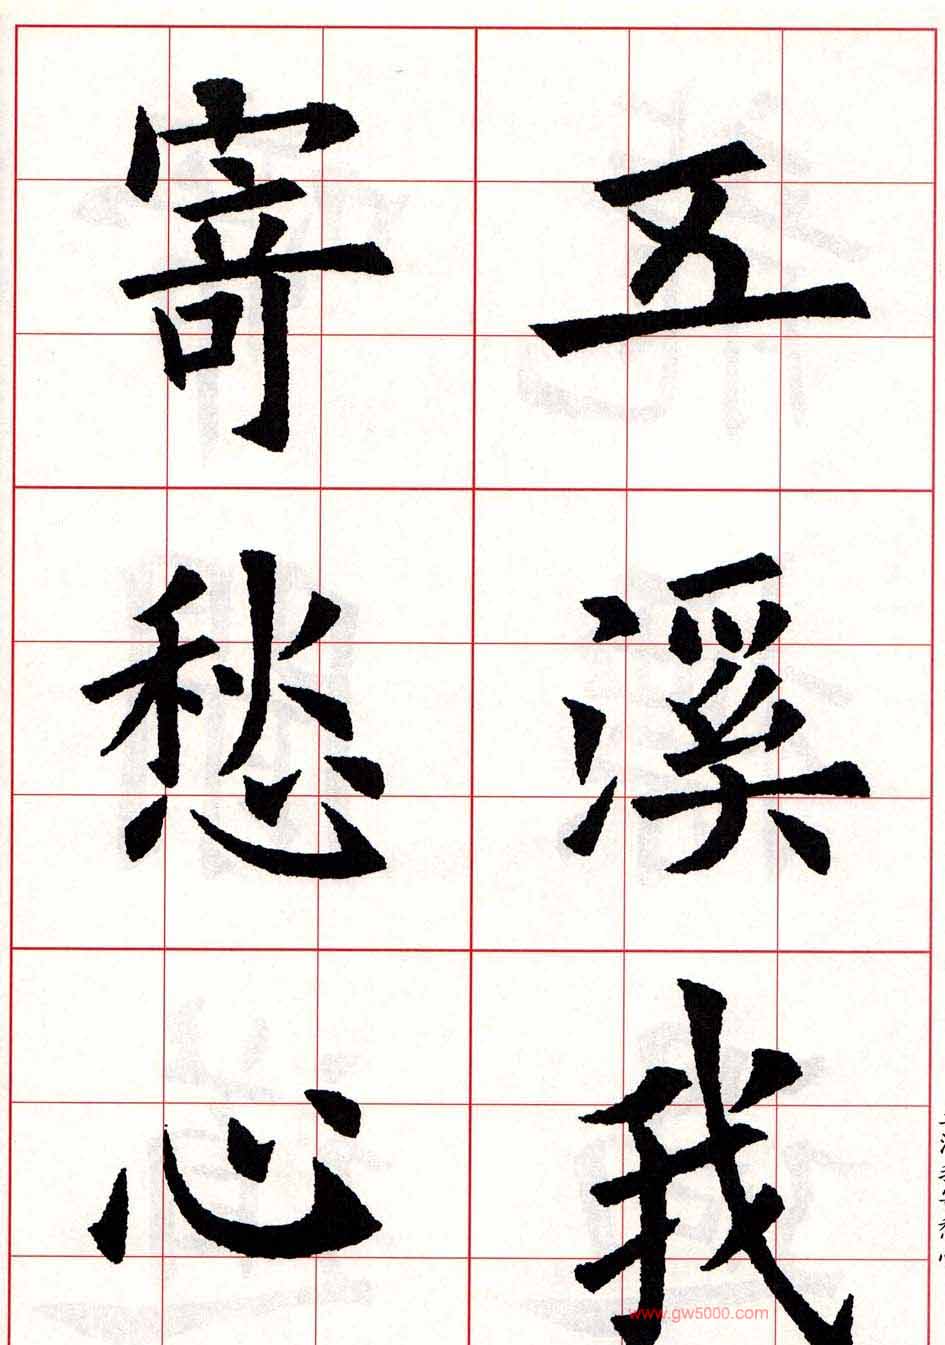 五溪我
寄愁心
www.gw5000.com